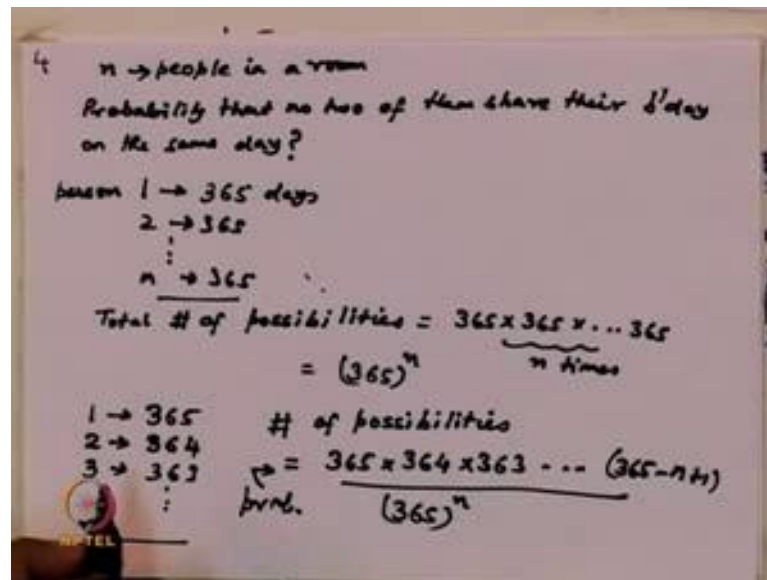 4
n → people in a room
Probability that no two of them share their b'day
on the same day?
person 1 → 365 days
2 → 365
⋮
n → 365
Total # of possibilities = 365 x 365 x ... 365
n times
= (365)^n
1 → 365
2 → 364
3 → 363
⋮
# of possibilities
= 365 x 364 x 363 ... (365-n+1)
prob.
(365)^n
NPTEL